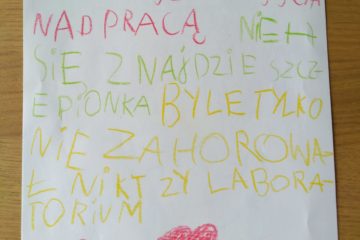 NAD PRACĄ NIEH
SIĘ ZNAJDZIE SZCZE
EPIONKA BYLE TYLKO
NIE ZAHOROWA
Ł NIKT ZY LABORA
TORIUM